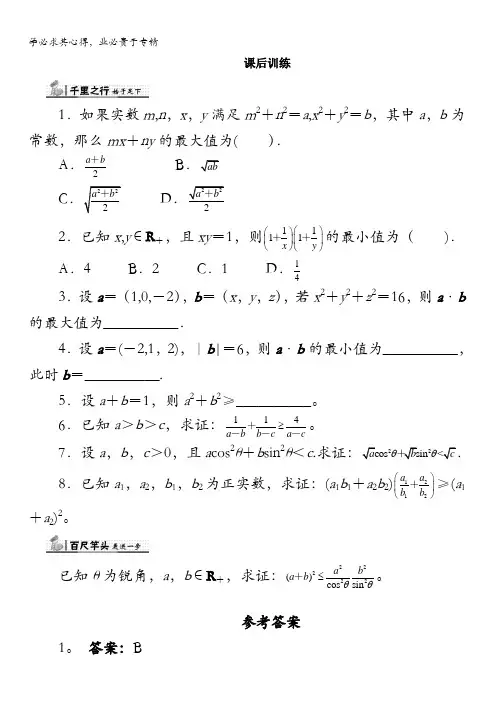 学必求其心得，业必贵于专精
课后训练
千里之行 始于足下
1．如果实数m,n，x，y满足m²＋n²＝a,x²＋y²＝b，其中a，b为
常数，那么mx＋ny的最大值为(　　)．
A．(a＋b)/2　　B．√ab
C．√((a²＋b²)/2)　　D．√(a²＋b²)/2
2．已知x,y∈R＋，且xy＝1，则(1+1/x)(1+1/y)的最小值为（　　).
A．4　　B．2　　C．1　　D．1/4
3．设a＝（1,0,－2），b＝（x，y，z)，若x²＋y²＋z²＝16，则a·b
的最大值为__________．
4．设a＝(－2,1，2)，|b|＝6，则a·b的最小值为__________，
此时b＝__________.
5．设a＋b＝1，则a²＋b²≥__________。
6．已知a＞b＞c，求证：1/(a－b)＋1/(b－c)≥4/(a－c)。
7．设a，b，c＞0，且acos²θ＋bsin²θ＜c.求证：√a cos²θ＋√b sin²θ<√c．
8．已知a₁，a₂，b₁，b₂为正实数，求证：(a₁b₁＋a₂b₂)(a₁/b₁＋a₂/b₂)≥(a₁
＋a₂)²。
百尺竿头 更进一步
已知θ为锐角，a，b∈R＋，求证：(a＋b)²≤a²/cos²θ＋b²/sin²θ。
参考答案
1。答案：B